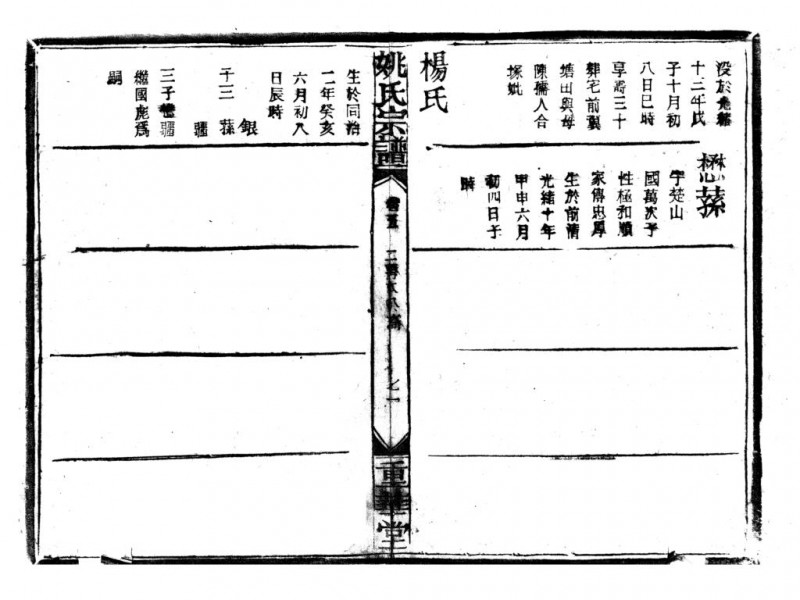 歿於光緒
十二年戊
子十月初
八日巳時
享壽三十
葬宅前冀
塘田與母
陳孺人合
塚妣
楊氏
懋蓀
字楚山
國萬次子
性極和順
家傳忠厚
生於前清
光緒十年
甲申六月
初四日子
時
姚氏宗譜
之一
重華堂
生於同治
二年癸亥
六月初八
日辰時
子三 蓀
銀
疆
三子疆
繼國彪為
嗣